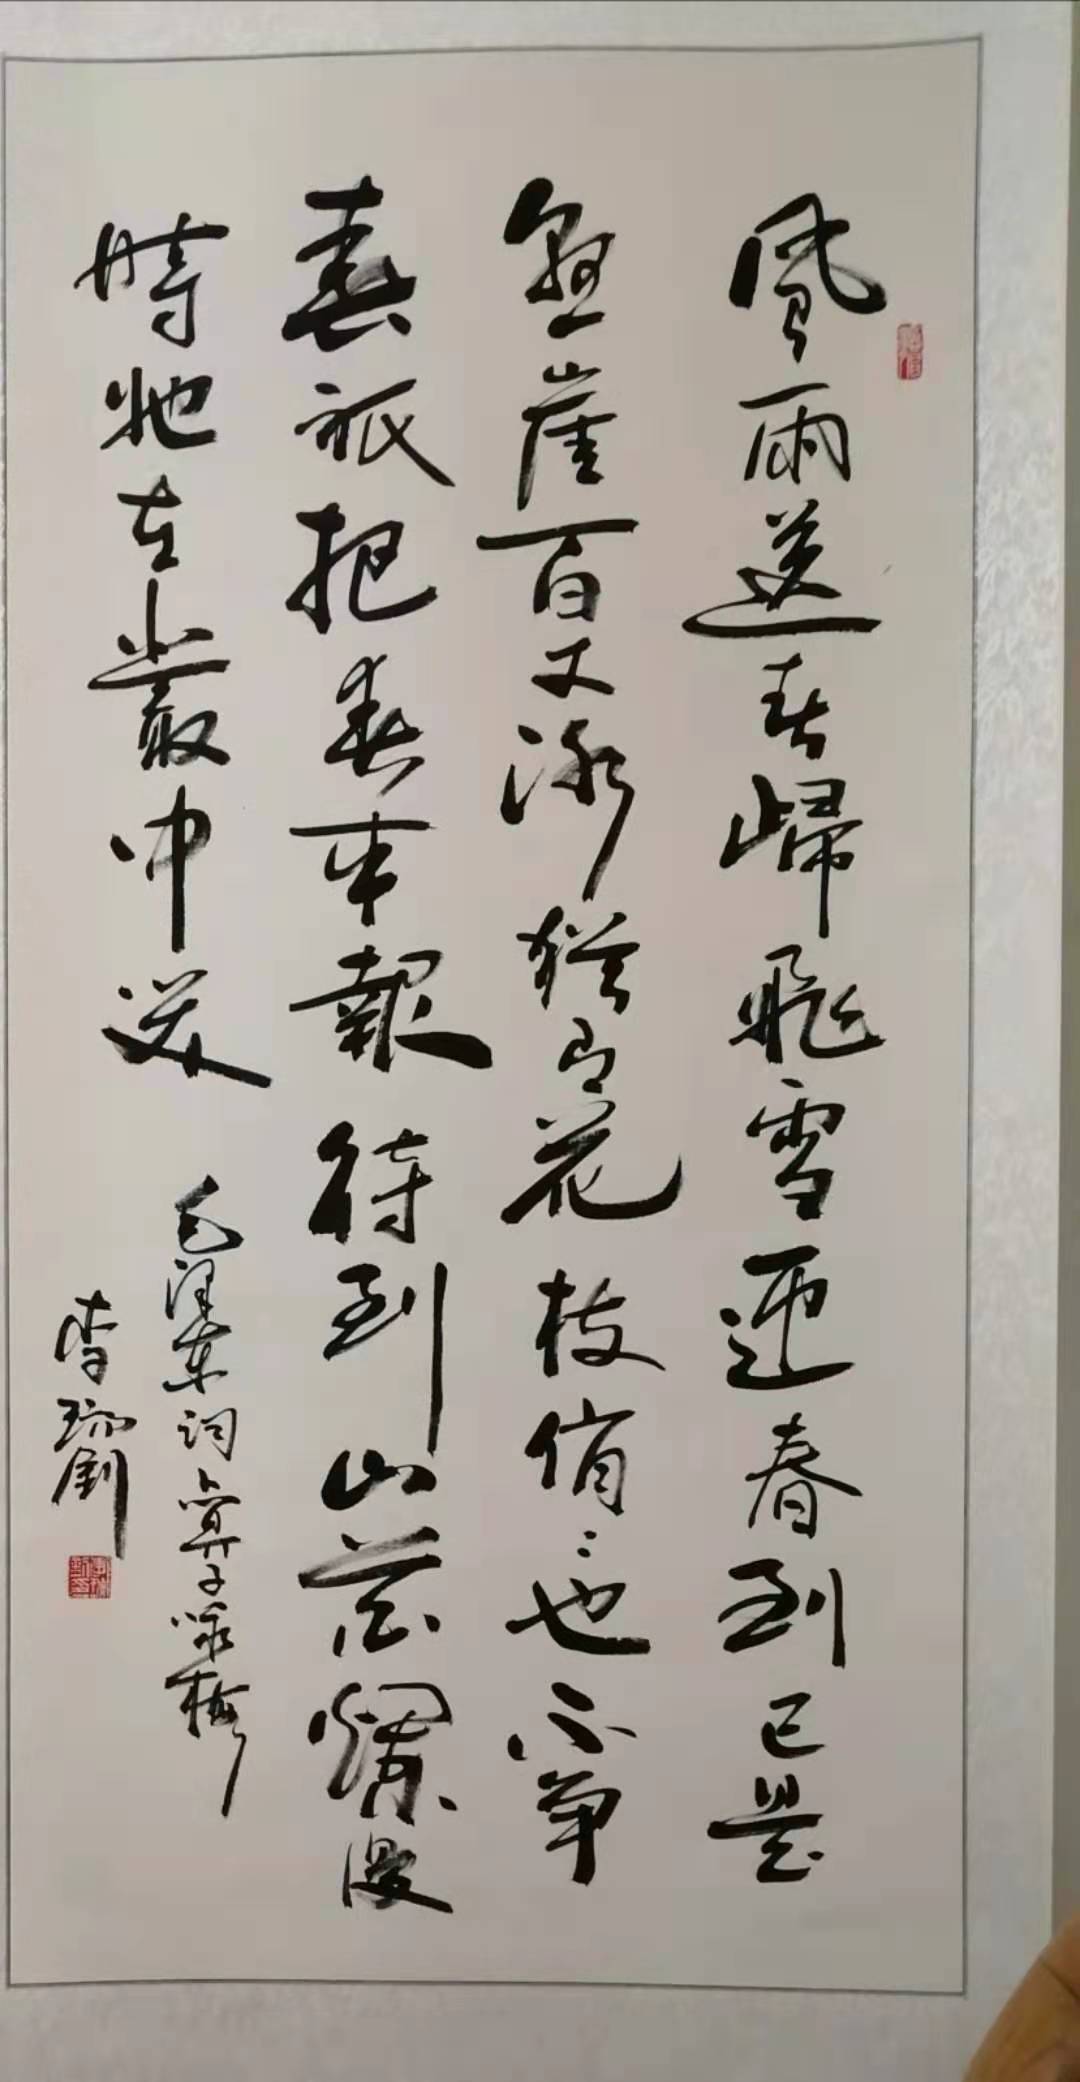 風雨送春歸飛雪迎春到已是
懸崖百丈冰猶有花枝俏〻也不争
春祇把春来報待到山花爛漫
時她在叢中笑
毛泽东词卜算子咏梅
李瑞